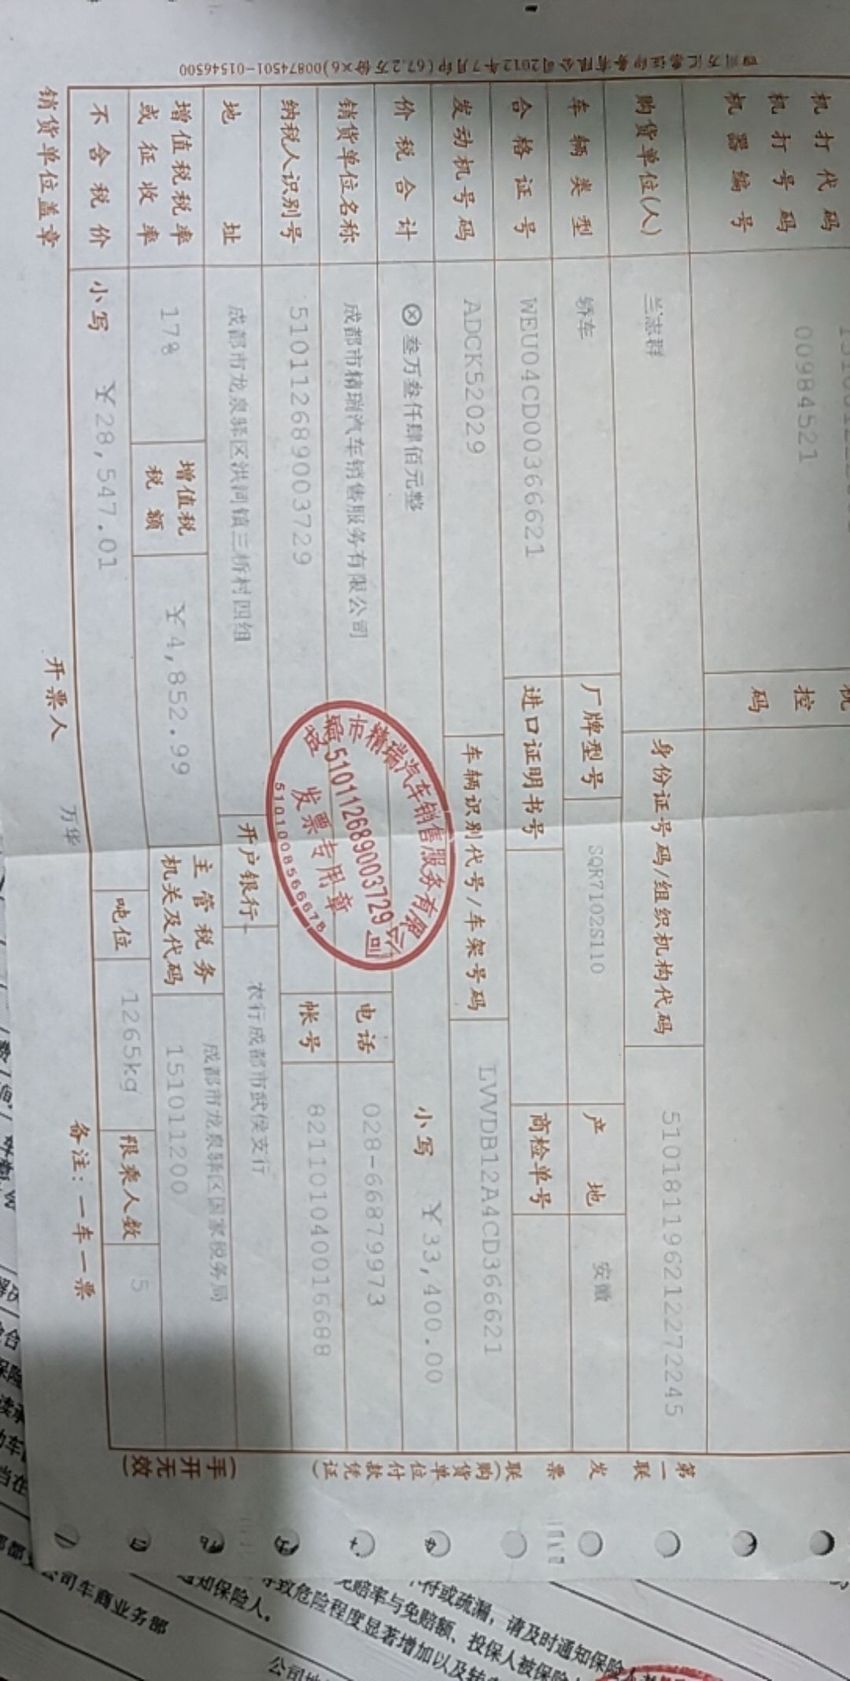 机打代码
机打号码 00984521
机器编号
税控码
购货单位(人) 兰志群 身份证号码/组织机构代码 510181196212272245
车辆类型 轿车 厂牌型号 SQR7102S110 产地 安徽
合格证号 WEU04CD00366621 进口证明书号 商检单号
发动机号码 ADCK52029 车辆识别代号/车架号码 LVVDB12A4CD366621
价税合计 ⊗叁万叁仟肆佰元整 小写 ￥33,400.00
销货单位名称 成都市精瑞汽车销售服务有限公司 电话 028-66879973
纳税人识别号 510112689003729 帐号 821101040016688
地址 成都市龙泉驿区洪河镇三桥村四组 开户银行 农行成都市武侯支行
增值税税率或征收率 17% 增值税税额 ￥4,852.99 主管税务机关及代码 成都市龙泉驿区国家税务局
151011200
不含税价 小写 ￥28,547.01 吨位 1265kg 限乘人数 5
销货单位盖章 开票人 万华 备注：一车一票
成都市精瑞汽车销售服务有限公司
510112689003729
发票专用章
5101008566678
第一联 发票联(购货单位付款凭证)
(手开无效)
四川万汇票证印务有限公司2012年7月印(67.2万份×6)00874501-01546500
符或疏漏，请及时通知保险人
免赔率与免赔额、投保人被保险
导致危险程度显著增加以及转
通知保险人。
公司车商业务部
公司地